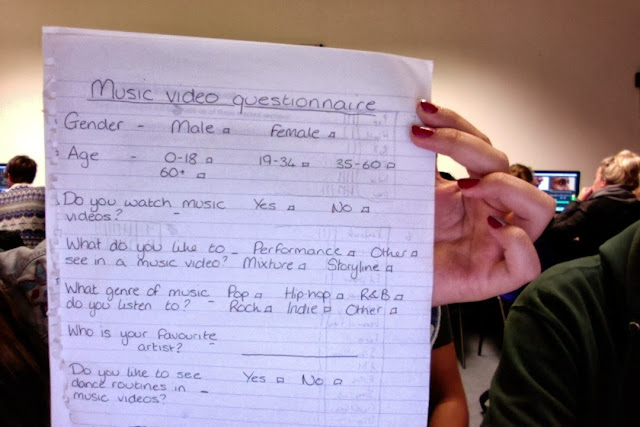 Music video questionnaire
Gender - Male □ Female □
Age - 0-18 □ 19-34 □ 35-60 □
60+ □
Do you watch music Yes □ No □
videos? -
What do you like to - Performance □ Other □
see in a music video? Mixture □ Storyline □
What genre of music Pop □ Hip-hop □ R&B □
do you listen to? - Rock □ Indie □ Other □
Who is your favourite -
artist?
Do you like to see Yes □ No □
dance routines in -
music videos?